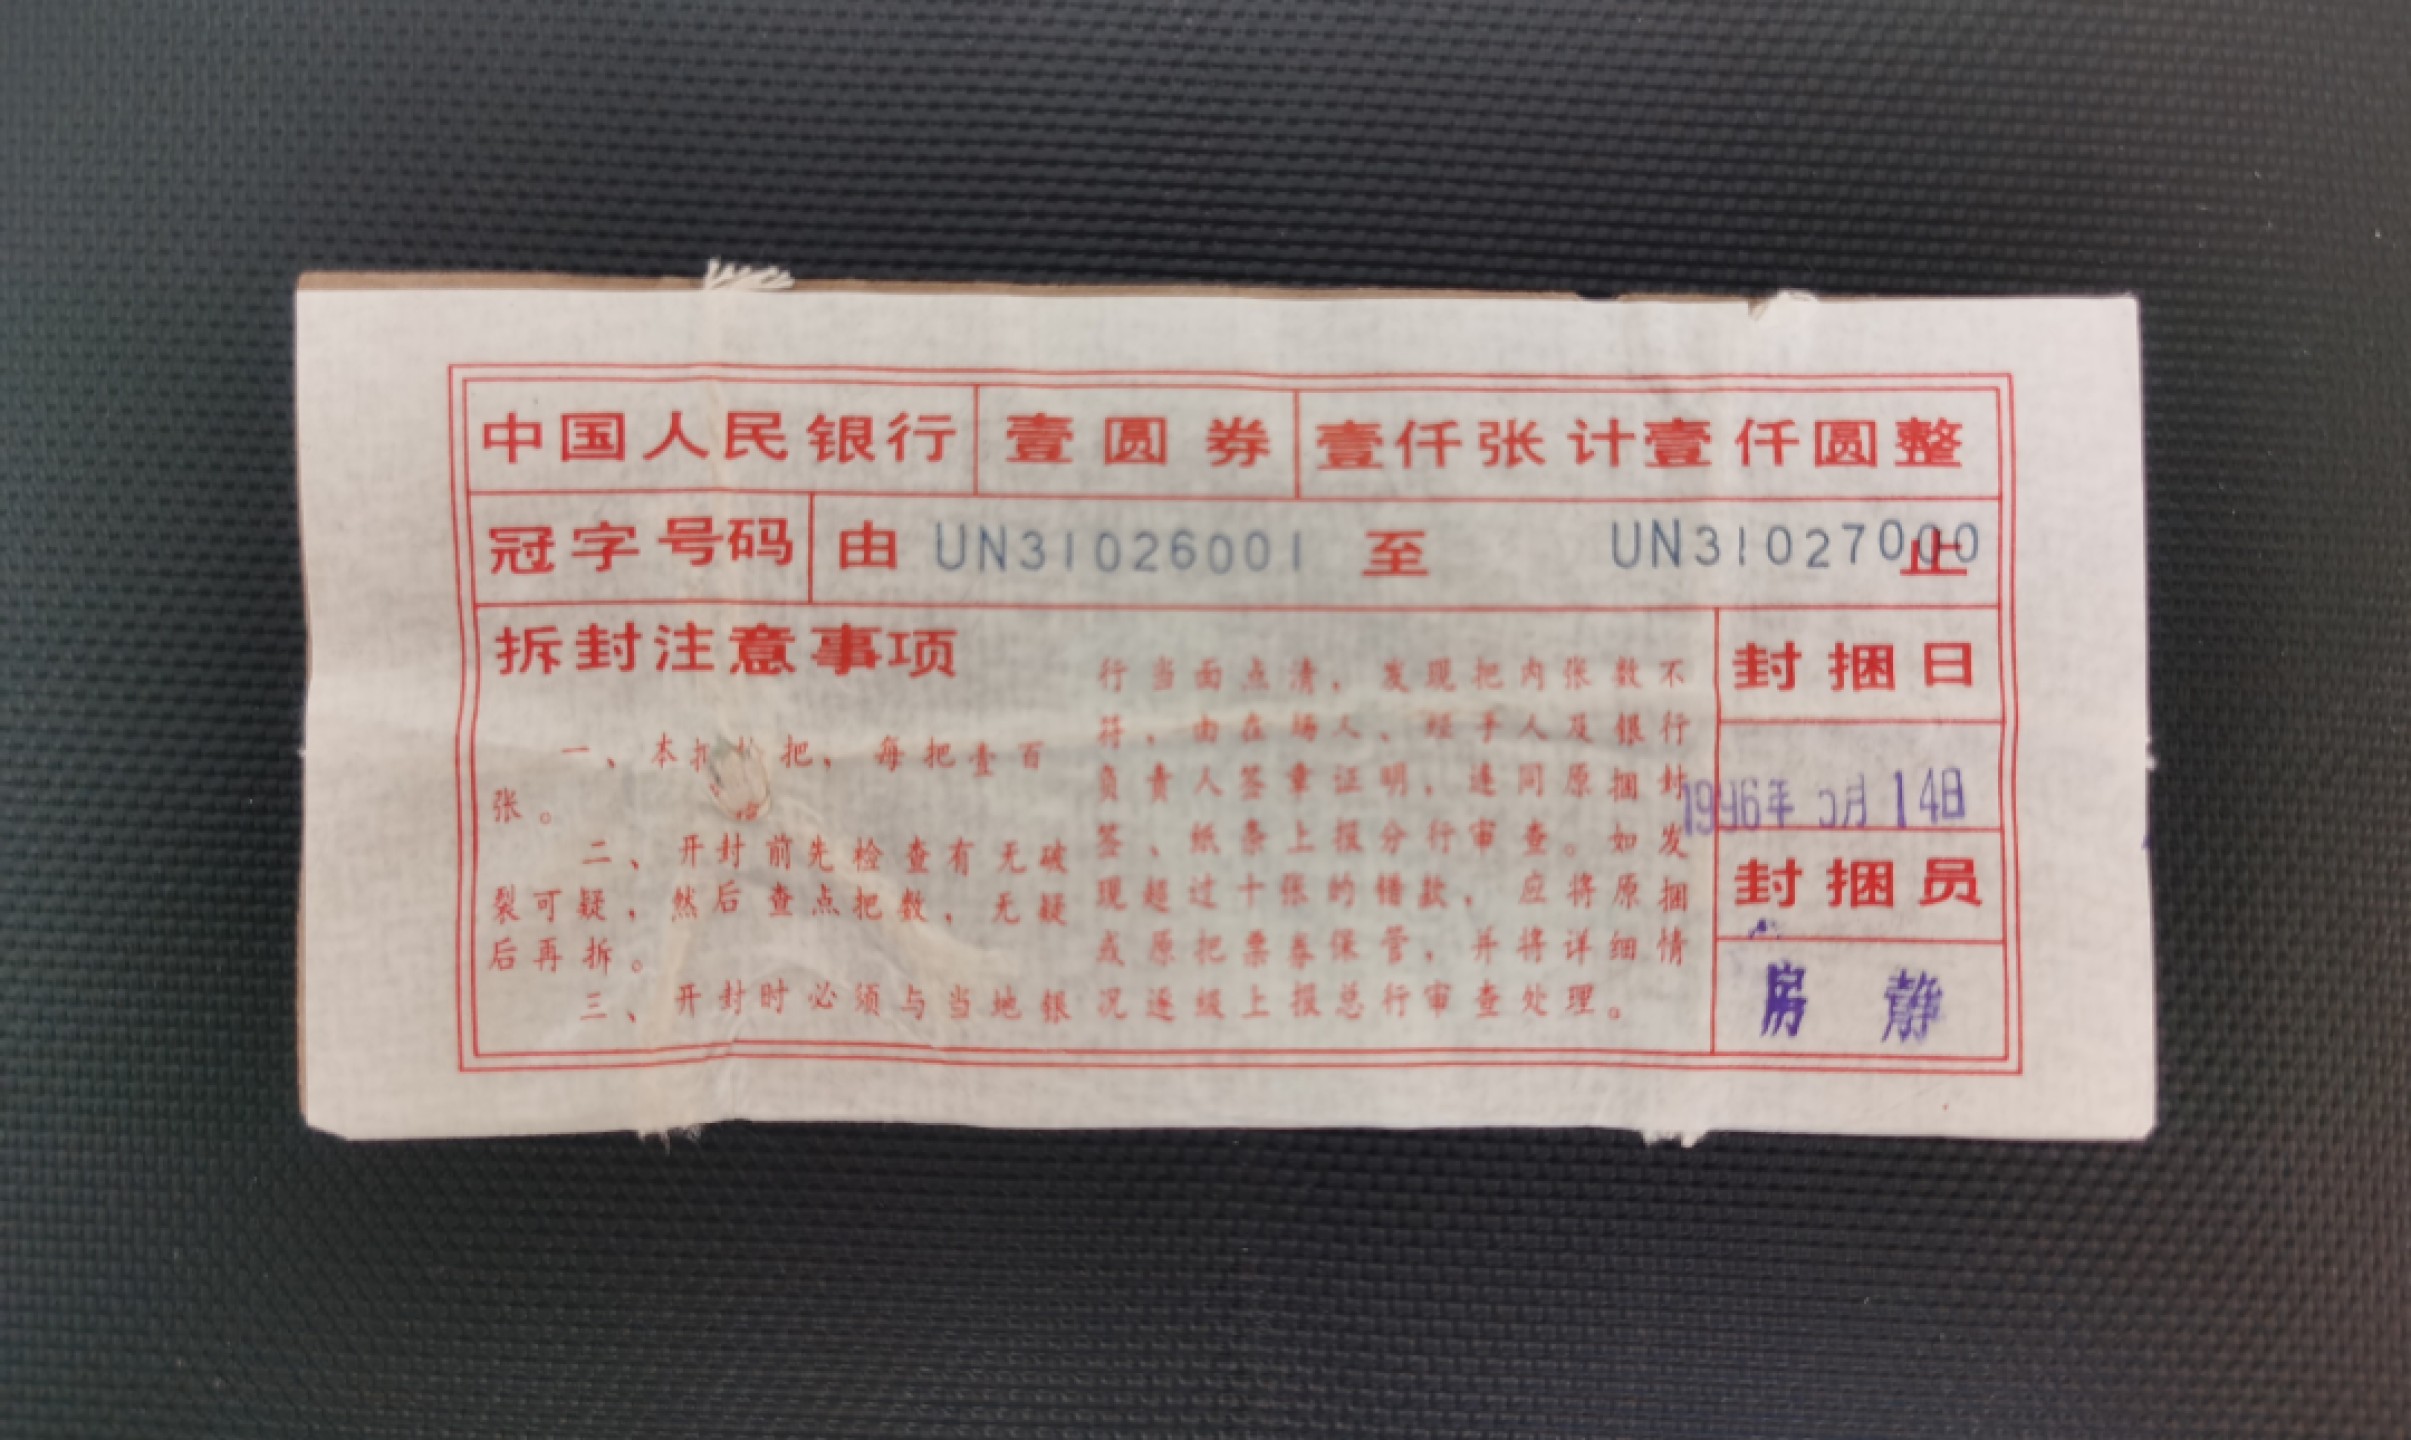 中国人民银行 壹圆券 壹仟张计壹仟圆整
冠字号码 由 UN31026001 至 UN31027000 止
拆封注意事项
一、本 把，每把壹百
张。
二、开封前先检查有无破
裂可疑，然后查点把数，无疑
后再拆。
三、开封时必须与当地银
行当面点清，发现把内张数不
符，由在场人、经手人及银行
负责人签章证明，连同原捆封
签、纸条上报分行审查。如发
现超过十张的错款，应将原捆
或原把票券保管，并将详细情
况逐级上报总行审查处理。
封捆日
1996年 月14日
封捆员
房静